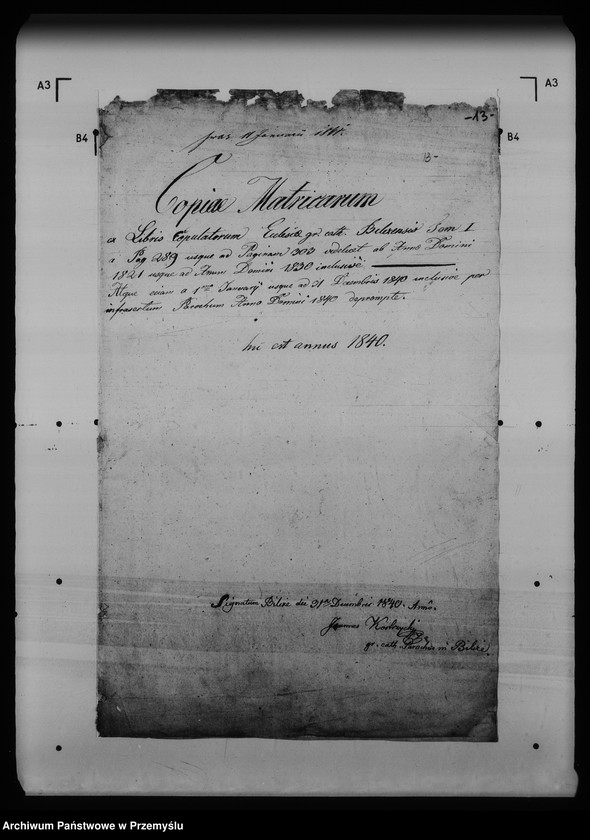 A3
A3
-13-
B4
B4
Januarii
B-
Copiae Matricarum
ex Libris Copulatorum Eclesiæ gr. cath. Bilczensis Tom I
a Pag 289 usque ad Paginam 303 videlicet ab Anno Domini
1821 usque ad Annum Domini 1830 inclusivé
Atque etiam a 1ma Januarij usque ad 31 Decembris 1840 inclusive per
infrascriptum Parochum Anno Domini 1840 deprompte.
hic est annus 1840.
Signatum Bilcze die 31ma Decembris 1840. Anno.
Joannes
gr. cath. Parochus in Bilcze.
Archiwum Państwowe w Przemyślu